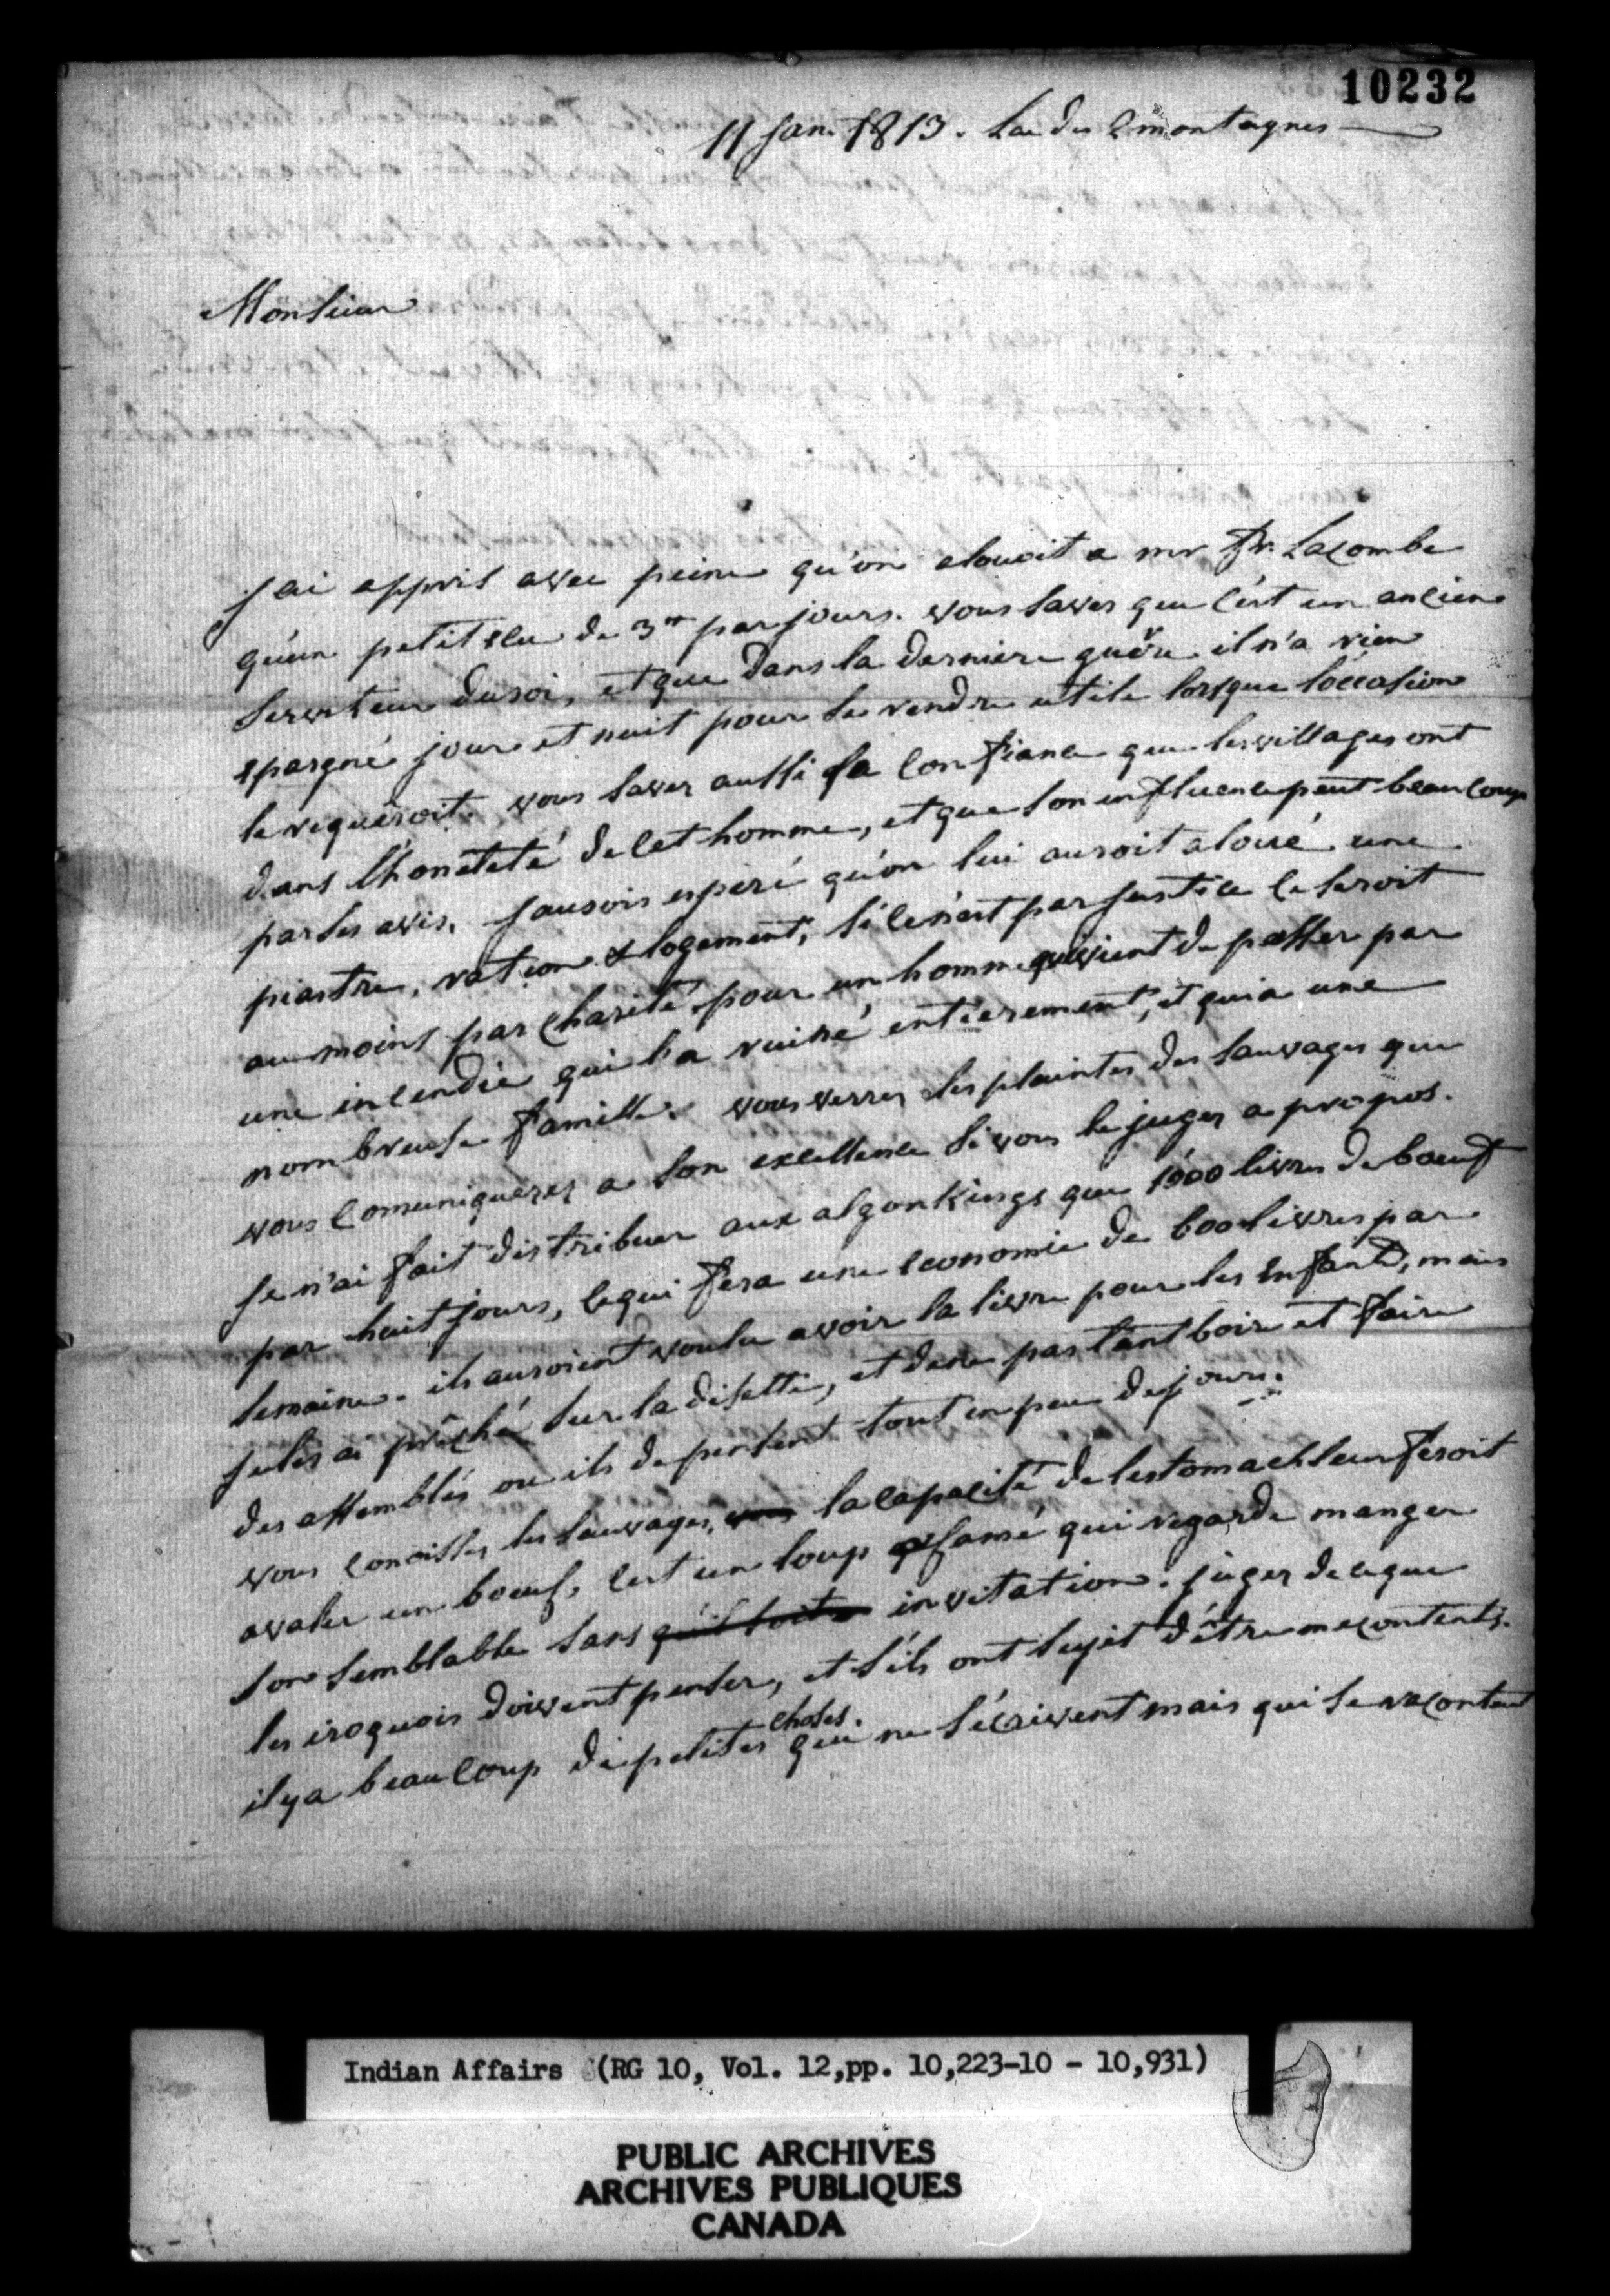 10232
11 Jan. 1813. Lac des 2 montagnes
Monsieur
J'ai appris avec peine qu'on alouoit a mr fr. Lacombe
qu'un petit ecu de 3tt par jours. vous savez que c'est un ancien
serviteur du roi, et que dans la derniere guêre il n'a rien
epargné jour et nuit pour se rendre utile lorsque l'occasion
le requeroit. vous savez aussi la confiance que les villages ont
dans l'honêteté de cet homme, et que son influence peut beaucoup
par ses avis. J'aurois esperé qu'on lui auroit aloué une
piastre, ration & logement, si ce n'est par justice ce seroit
au moins par charité pour un homme qui vient de passer par
une incendie qui l'a ruiné entierement, et qui a une
nombreuse famille. vous verrez les plaintes des sauvages que
vous comuniquerez a son excellence si vous le jugez a propos.
Je n'ai fait distribuer aux algonkings que 1000 livres de boeuf
par huit jours, ce qui fera une economie de 600 livres par
semaine. ils auroient voulu avoir la livre pour les enfants, mais
je les ai prêché sur la disette, et de ne pas tant boire et faire
des assemblés ou ils depensent tout en peu de jours.
vous conoissez les sauvages, la capacité de lestomach leur feroit
avaler un boeuf, c'est un loup afamé qui regarde manger
son semblable sans qu'il soit invitation. jugez de ce que
les iroquois doivent penser, et s'ils ont sujet d'être mecontents.
il y a beaucoup de petites choses. qui ne s'écrivent mais qui se racontent
Indian Affairs (RG 10, Vol. 12,pp. 10,223-10 - 10,931)
PUBLIC ARCHIVES
ARCHIVES PUBLIQUES
CANADA